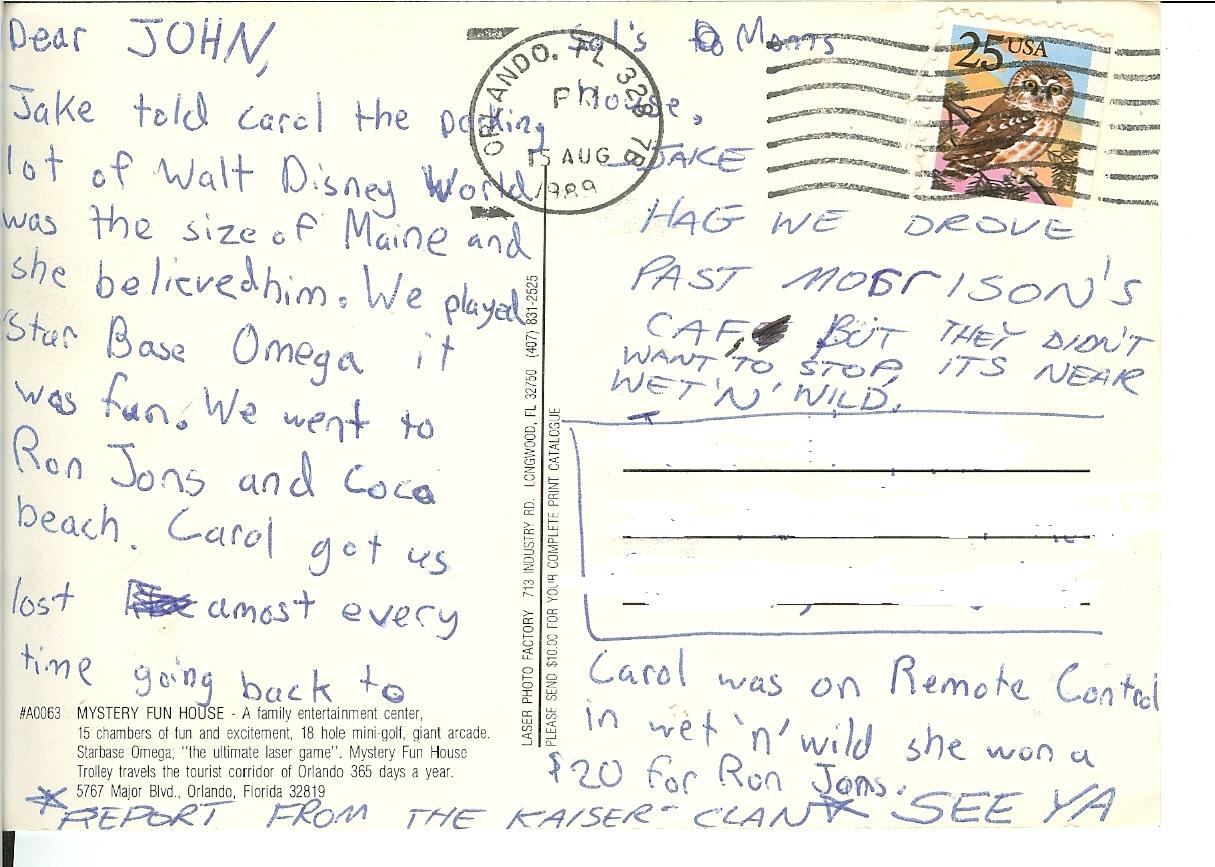 Dear JOHN,
Jake told carol the parking
lot of Walt Disney World
was the size of Maine and
she believed him. We played
Star Base Omega it
was fun. We went to
Ron Jons and Coco
beach. Carol got us
lost amost every
time going back to
Sal's to Moms
house.
—JAKE
HAG WE DROVE
PAST MORRISON'S
CAF, BUT THEY DIDN'T
WANT TO STOP, ITS NEAR
WET 'N' WILD.
Carol was on Remote Control
in wet 'n' wild she won a
$20 for Ron Jons. SEE YA
*REPORT FROM THE KAISER CLAN*
ORLANDO, FL 328
PM
15 AUG
1989
7B
25 USA
LASER PHOTO FACTORY 713 INDUSTRY RD. LONGWOOD, FL 32750 (407) 831-2525
PLEASE SEND $10.00 FOR YOUR COMPLETE PRINT CATALOGUE
#A0063 MYSTERY FUN HOUSE - A family entertainment center,
15 chambers of fun and excitement, 18 hole mini-golf, giant arcade.
Starbase Omega, "the ultimate laser game". Mystery Fun House
Trolley travels the tourist corridor of Orlando 365 days a year.
5767 Major Blvd., Orlando, Florida 32819